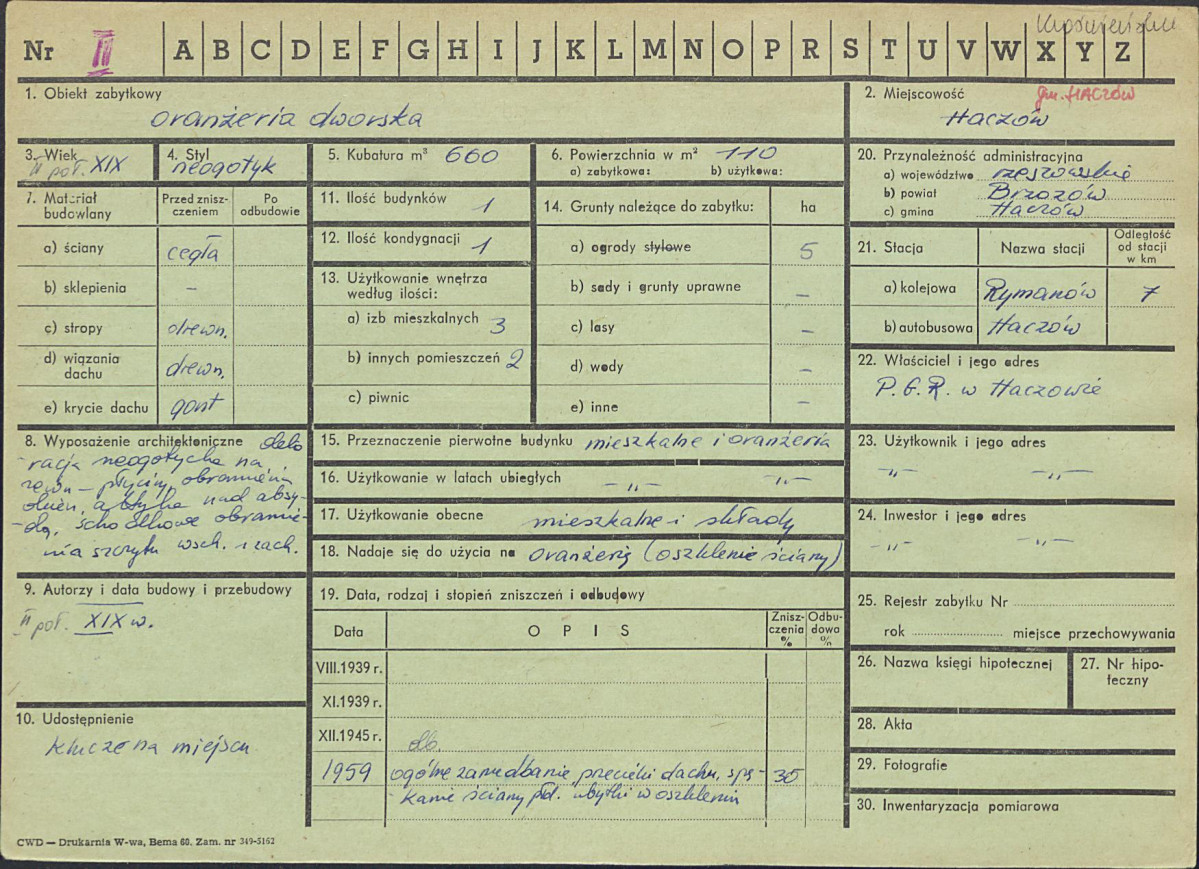 Nr II A B C D E F G H I J K L M N O P R S T U V W X Y Z
1. Obiekt zabytkowy
oranżeria dworska
2. Miejscowość
gm. HACZÓW
Haczów
3. Wiek
II poł. XIX
4. Styl
neogotyk
5. Kubatura m³ 660
6. Powierzchnia w m² 110
a) zabytkowa: b) użytkowa:
7. Materiał budowlany
Przed zniszczeniem
Po odbudowie
a) ściany cegła
b) sklepienia –
c) stropy drewn.
d) wiązania dachu drewn.
e) krycie dachu gont
8. Wyposażenie architektoniczne deko
racja neogotycka na
zewn – płyciny, obramienia
okien, attyka nad absy-
-dą, schodkowe obramie-
nia szczytu wsch. i zach.
9. Autorzy i data budowy i przebudowy
II poł. XIX w.
10. Udostępnienie
klucze na miejscu
11. Ilość budynków 1
12. Ilość kondygnacji 1
13. Użytkowanie wnętrza
według ilości:
a) izb mieszkalnych 3
b) innych pomieszczeń 2
c) piwnic
14. Grunty należące do zabytku: ha
a) ogrody stylowe 5
b) sady i grunty uprawne –
c) lasy –
d) wody –
e) inne –
15. Przeznaczenie pierwotne budynku mieszkalne i oranżeria
16. Użytkowanie w latach ubiegłych –„– –„–
17. Użytkowanie obecne mieszkalne i składy
18. Nadaje się do użycia na oranżerię (oszklenie ściany)
19. Data, rodzaj i stopień zniszczeń i odbudowy
Data OPIS Zniszczenia % Odbudowa %
VIII.1939 r.
XI.1939 r.
XII.1945 r. db.
1959 ogólne zaniedbanie, przecieki dachu, spę- 35
kanie ściany płd. ubytki w oszkleniu
20. Przynależność administracyjna
a) województwo rzeszowskie
b) powiat Brzozów
c) gmina Haczów
21. Stacja Nazwa stacji Odległość od stacji w km
a) kolejowa Rymanów 7
b) autobusowa Haczów
22. Właściciel i jego adres
P.G.R. w Haczowie
23. Użytkownik i jego adres
–„– –„–
24. Inwestor i jego adres
–„– –„–
25. Rejestr zabytku Nr
rok miejsce przechowywania
26. Nazwa księgi hipotecznej
27. Nr hipoteczny
28. Akta
29. Fotografie
30. Inwentaryzacja pomiarowa
CWD — Drukarnia W-wa, Bema 60. Zam. nr 349-5162